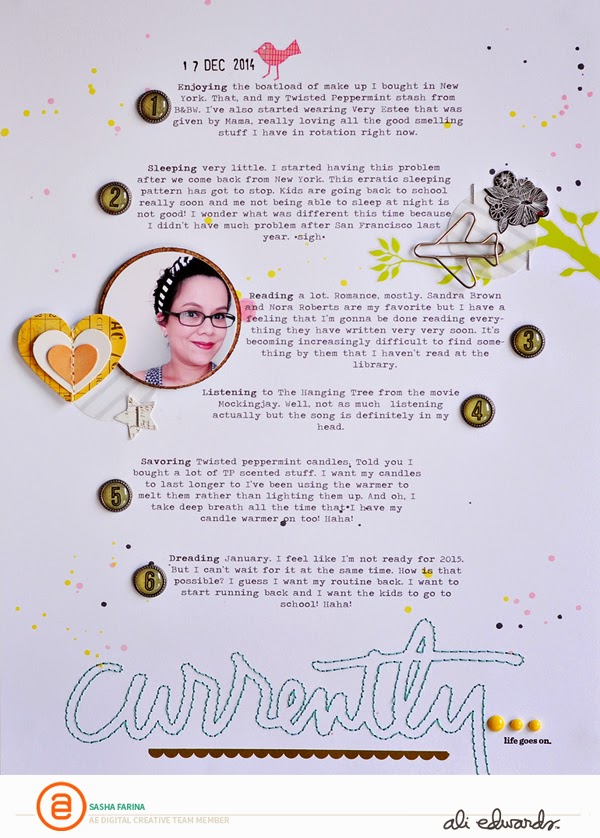 17 DEC 2014
1
Enjoying the boatload of make up I bought in New
York. That, and my Twisted Peppermint stash from
B&BW. I've also started wearing Very Estee that was
given by Mama, really loving all the good smelling
stuff I have in rotation right now.
2
Sleeping very little. I started having this problem
after we come back from New York. This erratic sleeping
pattern has got to stop. Kids are going back to school
really soon and me not being able to sleep at night is
not good! I wonder what was different this time because
I didn't have much problem after San Francisco last
year. *sigh*
Reading a lot. Romance, mostly. Sandra Brown
and Nora Roberts are my favorite but I have a
feeling that I'm gonna be done reading every-
thing they have written very very soon. It's
becoming increasingly difficult to find some-
thing by them that I haven't read at the
library.
3
Listening to The Hanging Tree from the movie
Mockingjay. Well, not as much listening
actually but the song is definitely in my
head.
4
Savoring Twisted peppermint candles, Told you I
bought a lot of TP scented stuff. I want my candles
to last longer to I've been using the warmer to
melt them rather than lighting them up. And oh, I
take deep breath all the time that I have my
candle warmer on too! Haha!
5
Dreading January. I feel like I'm not ready for 2015.
But I can't wait for it at the same time. How is that
possible? I guess I want my routine back. I want to
start running back and I want the kids to go to
school! Haha!
6
currently...
life goes on.
a
SASHA FARINA
AE DIGITAL CREATIVE TEAM MEMBER
ali edwards™